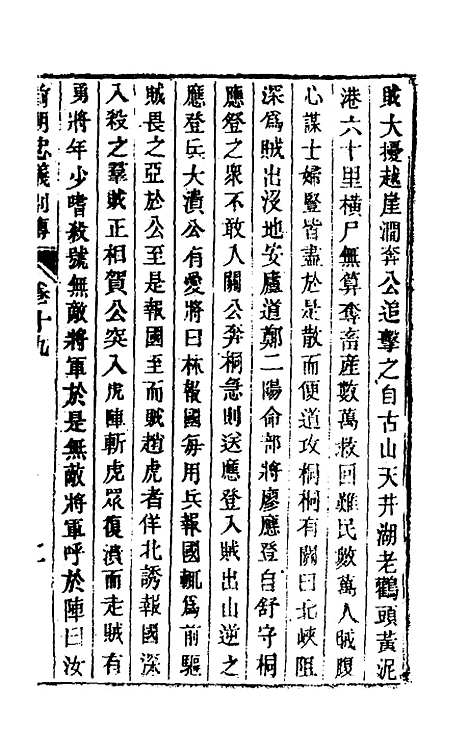 賊大擾越崖澗奔公追擊之自古山天井湖老鸛頭黃泥
港六十里橫尸無算奪畜産數萬救回難民數萬人賊腹
心謀士婦豎皆盡於是散而便道攻桐桐有關曰北峽阻
深爲賊出沒地安廬道鄭二陽命部將廖應登自舒守桐
應登之衆不敢入關公奔桐急則送應登入賊出山逆之
應登兵大潰公有愛將曰林報國每用兵報國輒爲前驅
賊畏之亞於公至是報國至而賊趙虎者佯北誘報國深
入殺之羣賊正相賀公突入虎陣斬虎眾復潰而走賊有
勇將年少嗜殺號無敵將軍於是無敵將軍呼於陣曰汝
前朝忠義别傳 卷十九